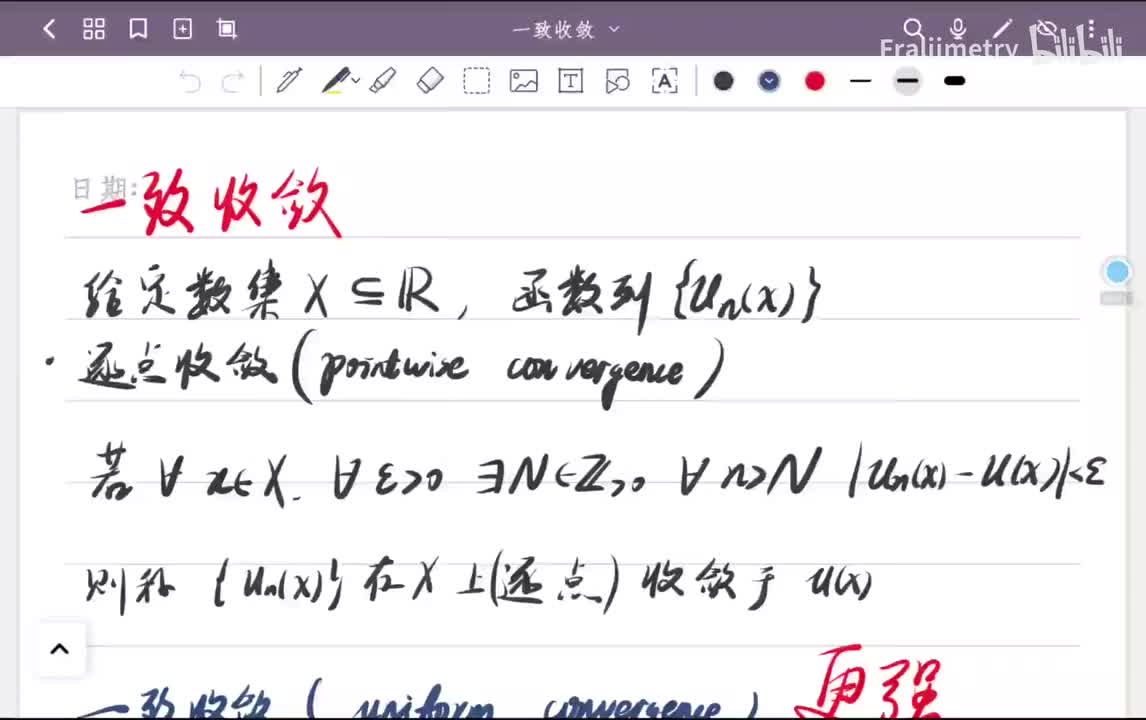 一致收敛
Fraliimetry bilibili
日期:
一致收敛
给定数集 X ⊆ ℝ, 函数列 {Un(x)}
· 逐点收敛 (pointwise convergence)
若 ∀ x∈X. ∀ ε>0 ∃N∈ℤ>0 ∀ n>N |Un(x)-U(x)|<ε
则称 {Un(x)} 在 X 上(逐点)收敛于 U(x)
一致收敛 (uniform convergence) 更强